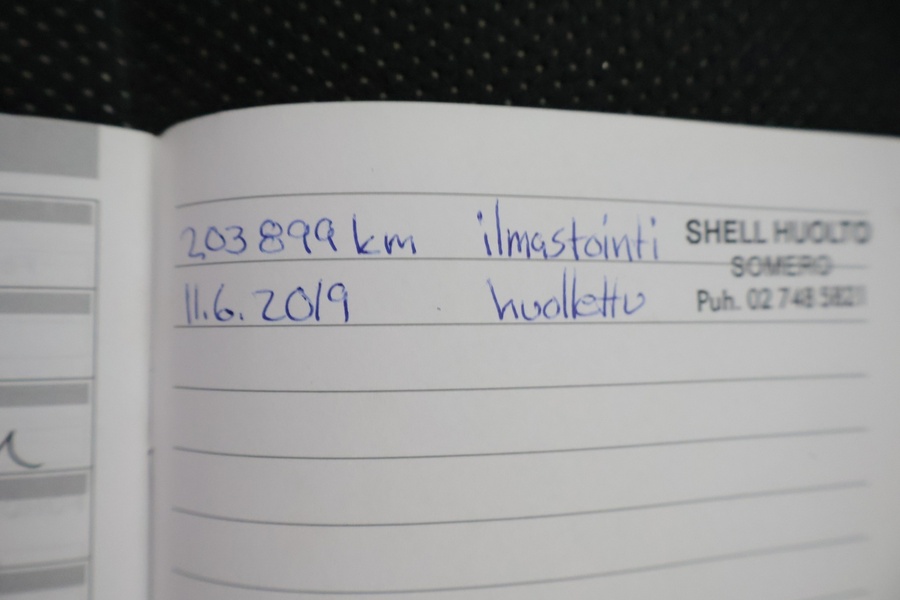 203 899 km ilmastointi SHELL HUOLTO
SOMERO
11.6.2019 huollettu Puh. 02 748 5821